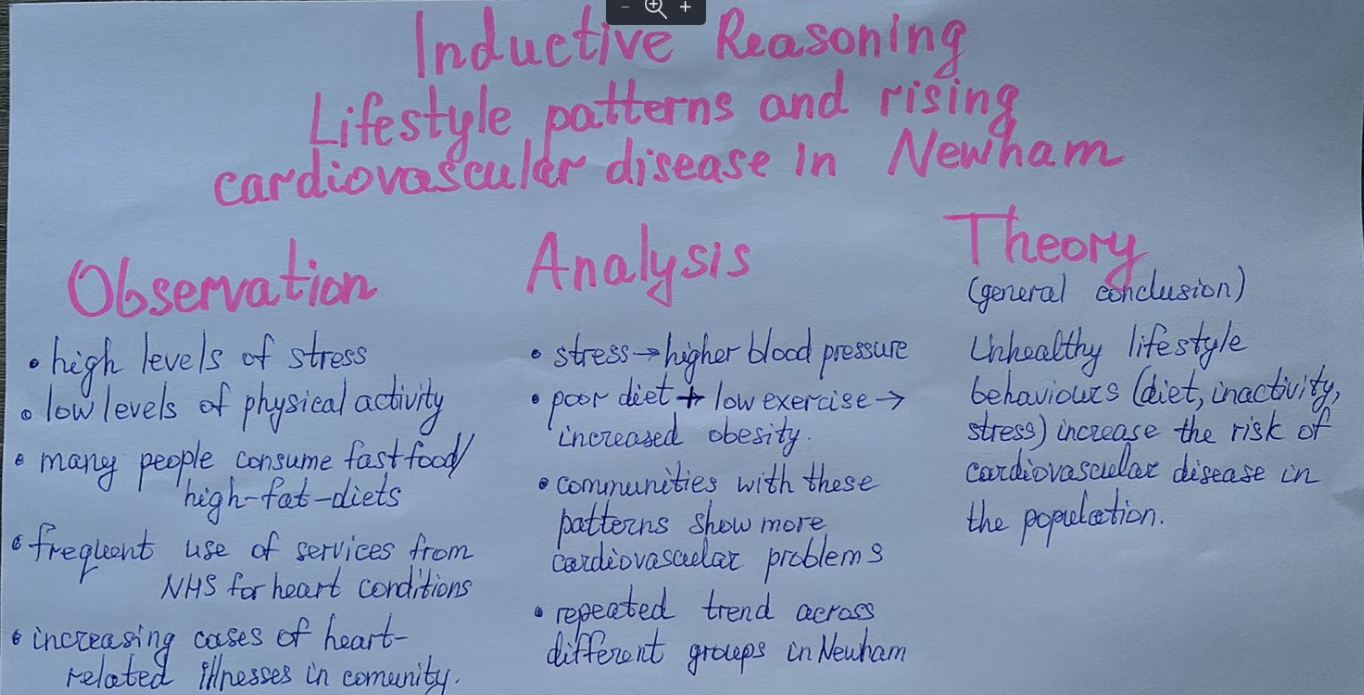 Inductive Reasoning
Lifestyle patterns and rising
cardiovascular disease in Newham
Observation
• high levels of stress
• low levels of physical activity
• many people consume fast food/
high-fat-diets
• frequent use of services from
NHS for heart conditions
• increasing cases of heart-
related illnesses in comunity.
Analysis
• stress → higher blood pressure
• poor diet + low exercise →
increased obesity.
• communities with these
patterns show more
cardiovascular problems
• repeated trend across
different groups in Newham
Theory
(general conclusion)
Unhealthy lifestyle
behaviours (diet, inactivity,
stress) increase the risk of
cardiovascular disease in
the population.